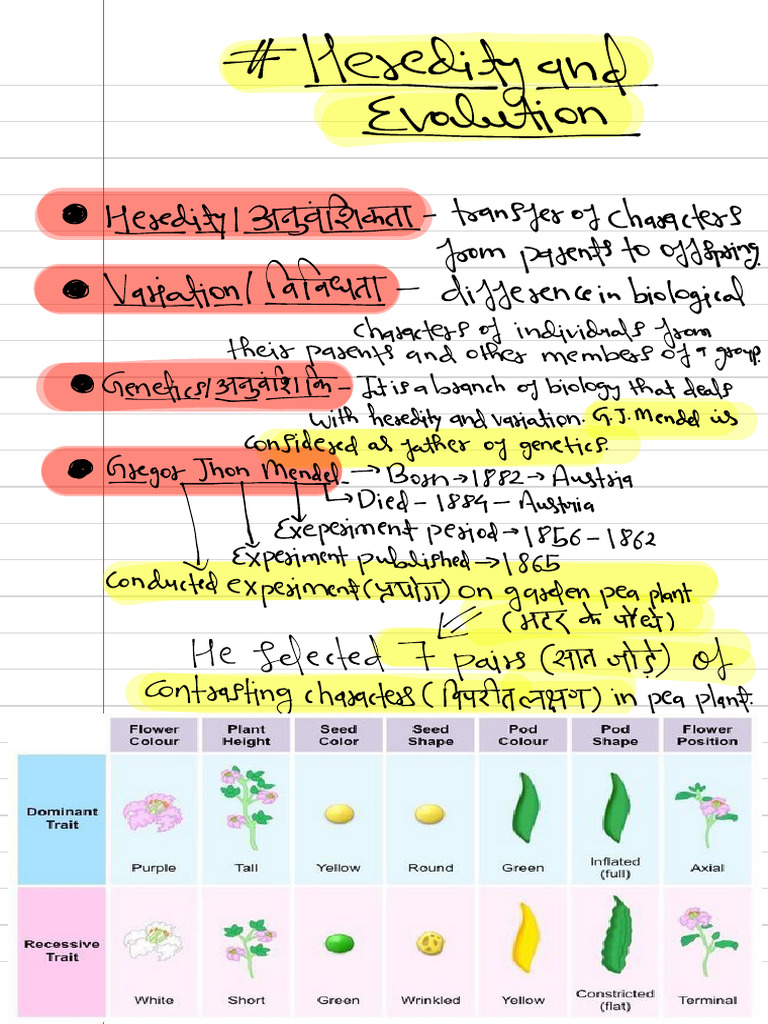 # Heredity and
Evalution
Heredity/अनुवंशिकता - transfer of characters
from parents to offspring.
Variation/विविधता - difference in biological
characters of individrals from
their parents and other members of a group.
Genetics/अनुवंशिकि - It is a branch of biology that deals
with heredity and variation. G.J. Mendel is
considered as father of genetics.
Gregor Jhon Mendel. → Born → 1882 → Austria
→ Died - 1884 - Austria
Exeperiment period → 1856 - 1862
Experiment published → 1865
Conducted experiment (प्रयोग) on garden pea plant
(मटर के पौधे)
He selected 7 pairs (सात जोड़े) of
contrasting characters (विपरीत लक्षण) in pea plant.
Flower Colour Plant Height Seed Color Seed Shape Pod Colour Pod Shape Flower Position
Dominant Trait
Purple Tall Yellow Round Green Inflated (full) Axial
Recessive Trait
White Short Green Wrinkled Yellow Constricted (flat) Terminal